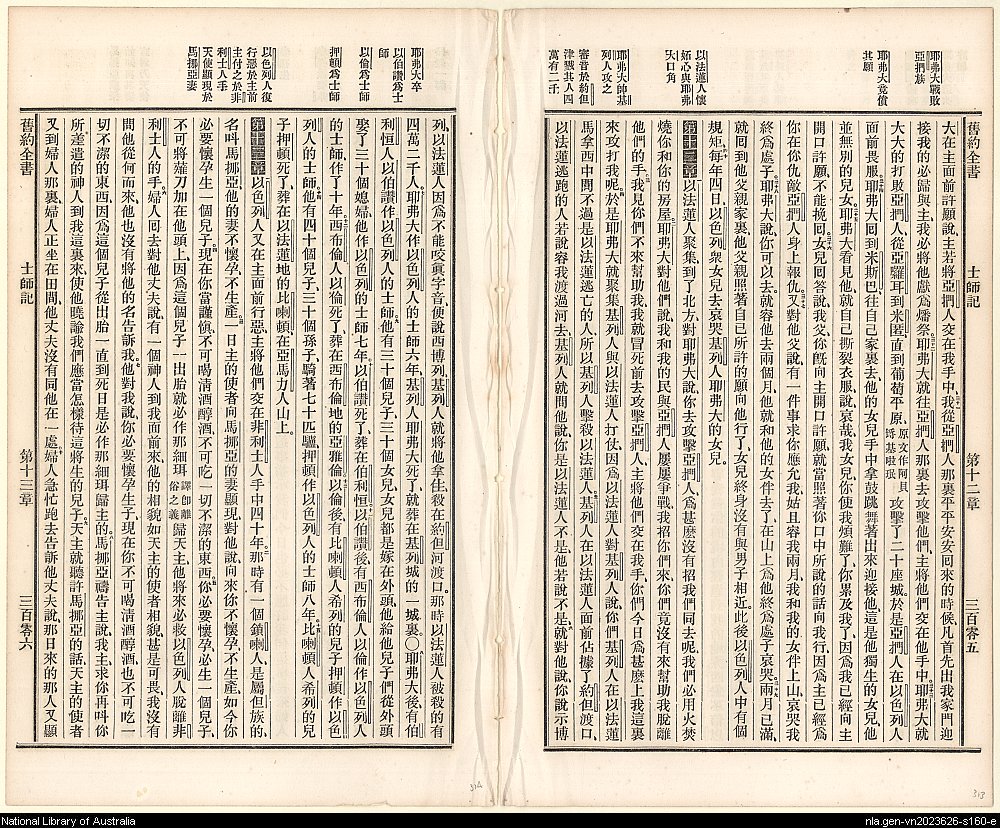 耶弗大戰敗
亞捫族
耶弗大竟償
其願
以法蓮人懷
妬心與耶弗
大口角
耶弗大帥基
列人攻之
審音於約但
津戮其人四
萬有二千
舊約全書 士師記 第十二章 三百零五
大在主面前許願說、主若將亞捫人交在我手中、我從亞捫人那裏平平安安囘來的時候、凡首先出我家門迎
接我的、必歸與主、我必將他獻爲燔祭、耶弗大就往亞捫人那裏去攻擊他們、主將他們交在他手中、耶弗大就
大大的打敗亞捫人、從亞囉耳到米匿、直到葡萄平原、原文作阿貝勒基喇珉攻擊了二十座城、於是亞捫人在以色列人
面前畏服、耶弗大囘到米斯巴、往自己家裏去、他的女兒手中拿鼓跳舞著出來迎接他、這是他獨生的女兒、他
並無別的兒女、耶弗大看見他、就自己撕裂衣服、說哀哉我女兒、你使我煩難了、你累及我了、因爲我已經向主
開口許願、不能挽囘、女兒囘答說、我父、你旣向主開口許願、就當照著你口中所說的話向我行、因爲主已經爲
你在你仇敵亞捫人身上報仇、又對他父說、有一件事求你應允我、姑且容我兩月、我和我的女伴上山、哀哭我
終爲處子、耶弗大說、你可以去、就容他去兩個月、他就和他的女伴去了、在山上爲他終爲處子哀哭、兩月已滿、
就囘到他父親家裏、他父親照著自己所許的願向他行了、女兒終身沒有與男子相近、此後以色列人中有個
規矩、每年四日以色列衆女兒去哀哭基列人耶弗大的女兒。
第十二章以法蓮人聚集到了北方、對耶弗大說、你去攻擊亞捫人、爲甚麽沒有招我們同去呢、我們必用火焚
燒你和你的房屋、耶弗大對他們說、我和我的民與亞捫人屢屢爭戰、我招你們來、你們竟沒有來幫助我脫離
他們的手、我見你們不來幫助我、我就冒死前去攻擊亞捫人、主將他們交在我手、你們今日爲甚麽上我這裏
來攻打我呢、於是耶弗大就聚集基列人、與以法蓮人打仗、因爲以法蓮人對基列人說、你們基列人在以法蓮
馬拿西中間、不過是以法蓮逃亡的人、所以基列人擊殺以法蓮人、基列人在以法蓮人面前佔據了約但渡口、
以法蓮逃跑的人若說、容我渡過河去、基列人就問他說、你是以法蓮人不是、他若說不是、就對他說、你說示博
耶弗大卒
以伯讚爲士
師
以倫爲士師
押頓爲士師
以色列人復
行惡於主前
主付之於非
利士人手
天使顯現於
馬挪亞妻
列、以法蓮人因爲不能咬眞字音、便說西博列、基列人就將他拿住、殺在約但河渡口、那時以法蓮人被殺的有
四萬二千人、耶弗大作以色列人的士師六年、基列人耶弗大死了、就葬在基列城的一城裏、〇耶弗大後有伯
利恒人以伯讚作以色列人的士師、他有三十個兒子、三十個女兒、女兒都是嫁在外頭、他給他兒子們從外頭
娶了三十個媳婦、他作以色列的士師七年、以伯讚死了、葬在伯利恒、以伯讚後有西布倫人以倫作以色列人
的士師、作了十年、西布倫人以倫死了、葬在西布倫地的亞雅倫、以倫後有比喇頓人希列的兒子押頓作以色
列人的士師、他有四十個兒子、三十個孫子、騎著七十匹驢、押頓作以色列人的士師八年、比喇頓人希列的兒
子押頓死了、葬在以法蓮地的比喇頓、在亞馬力人山上。
第十三章以色列人又在主面前行惡、主將他們交在非利士人手中四十年、那時有一個鎖喇人、是屬但族的、
名叫馬挪亞、他的妻不懷孕、不生產、一日主的使者向馬挪亞的妻顯現、對他說、向來你不懷孕不生產、如今你
必要懷孕生一個兒子、現在你當謹愼、不可喝淸酒醇酒、不可吃一切不潔的東西、你必要懷孕、必生一個兒子、
不可將薙刀加在他頭上、因爲這個兒子一出胎就必作那細珥譯卽離俗之義歸天主、他將來必救以色列人脫離非
利士人的手、婦人囘去對他丈夫說、有一個神人到我面前來、他的相貌如天主的使者相貌、甚是可畏、我沒有
問他從何而來、他也沒有將他的名告訴我、他對我說、你必要懷孕生子、現在你不可喝淸酒醇酒、也不可吃一
切不潔的東西、因爲這個兒子從出胎一直到死日、是必作那細珥歸主的、馬挪亞禱告主說、我主求你再叫你
所差遣的神人到我這裏來、使他曉諭我們、應當怎樣待這將生的兒子、天主就聽許馬挪亞的話、天主的使者
又到婦人那裏、婦人正坐在田間、他丈夫沒有同他在一處、婦人急忙跑去告訴他丈夫說、那日來的那人又顯
舊約全書 士師記 第十三章 三百零六
314
313
National Library of Australia
nla.gen-vn2023626-s160-e